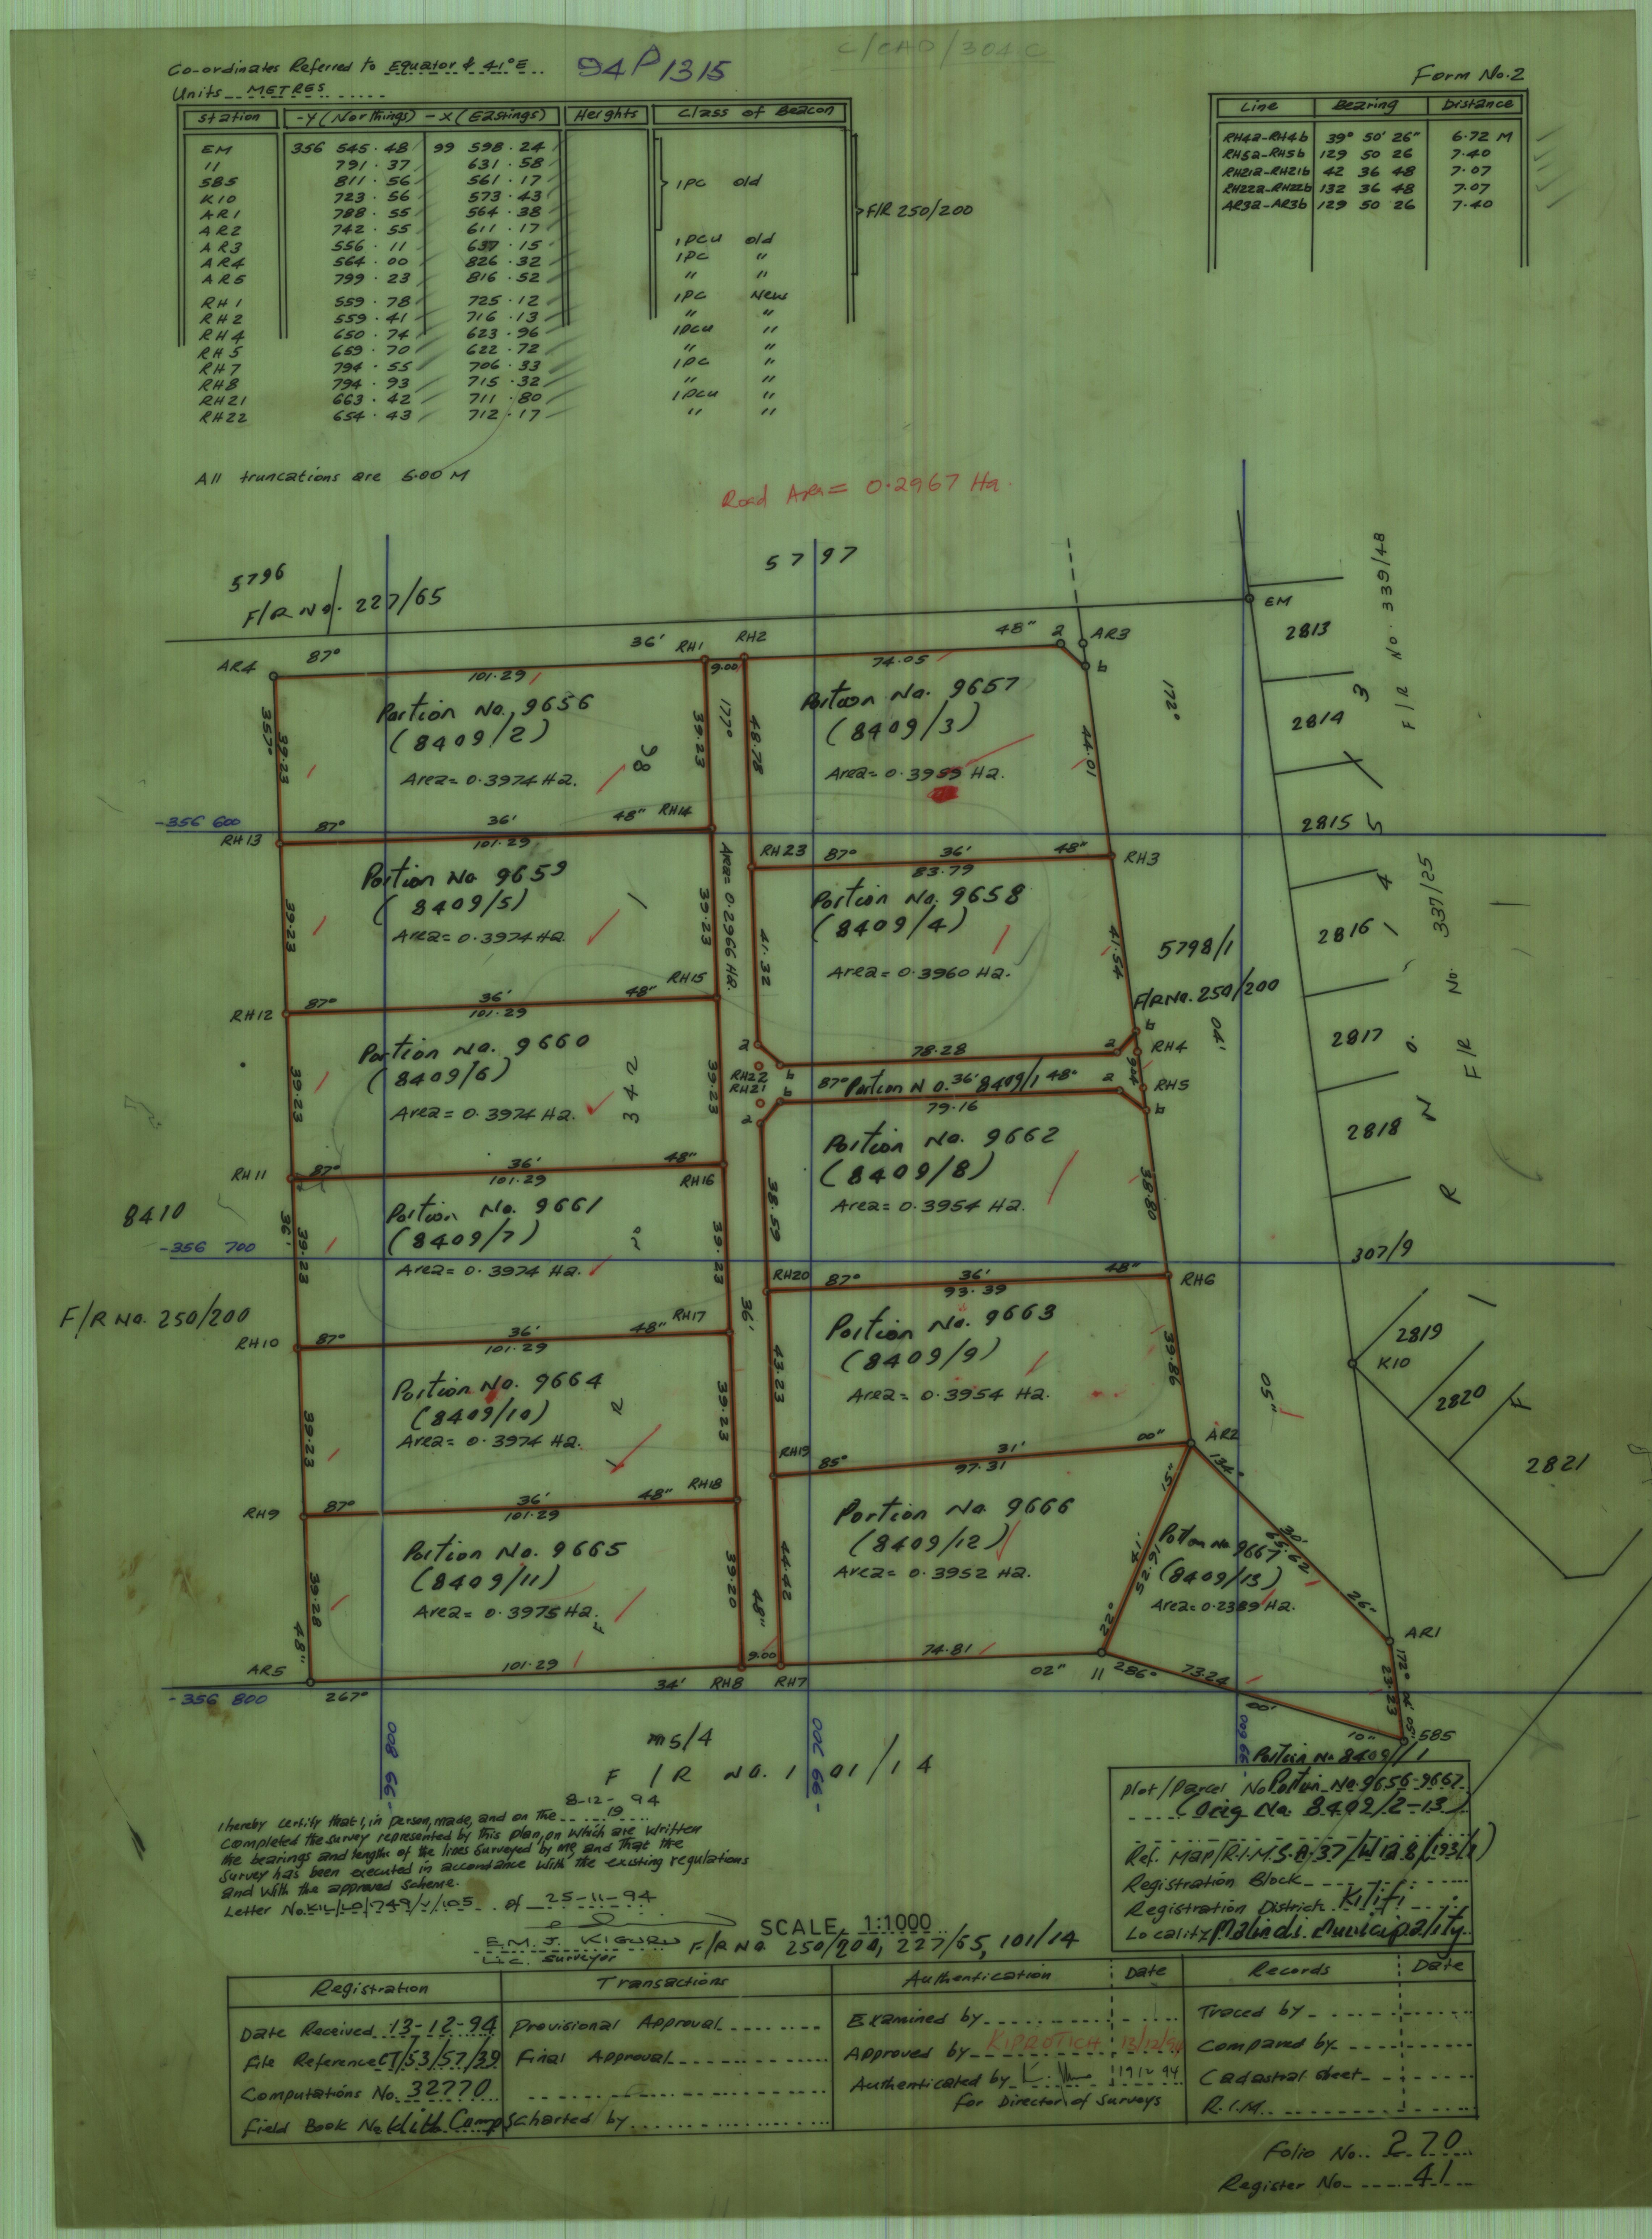 C/CAD/304 C
Co-ordinates Referred to Equator & 41°E
94P1315
Units METRES
Form No.2
Station -Y (Northings) -X (Eastings) Heights Class of Beacon
EM 356 545.48 99 598.24
11 791.37 631.58
585 811.56 561.17 IPC old
K10 723.56 573.43
AR1 788.55 564.38 F/R 250/200
AR2 742.55 611.17
AR3 556.11 637.15 IPCU old
AR4 564.00 826.32 IPC "
AR5 799.23 816.52 " "
RH1 559.78 725.12 IPC New
RH2 559.41 716.13 " "
RH4 650.74 623.96 IPCU "
RH5 659.70 622.72 " "
RH7 794.55 706.33 IPC "
RH8 794.93 715.32 " "
RH21 663.42 711.80 IPCU "
RH22 654.43 712.17 " "
Line Bearing Distance
RH4a-RH4b 39° 50' 26" 6.72 M
RH5a-RH5b 129 50 26 7.40
RH21a-RH21b 42 36 48 7.07
RH22a-RH22b 132 36 48 7.07
AR3a-AR3b 129 50 26 7.40
All truncations are 5.00 M
Road Area = 0.2967 Ha.
5796
5797
F/R No. 227/65
F/R No. 339/48
EM
2813
AR4 87° 36' RH1 RH2 48" a AR3
b
101.29 9.00 74.05
Portion No. 9656
(8409/2)
Area= 0.3974 Ha.
Portion No. 9657
(8409/3)
Area= 0.3959 Ha.
357° 39.23
39.23 177° 48.78
44.01 172°
2814
-356 600
RH13 87° 36' 48" RH14
101.29
2815
RH23 87° 36' 48" RH3
83.79
Portion No 9659
(8409/5)
Area= 0.3974 Ha.
Area= 0.2966 Ha.
Portion No. 9658
(8409/4)
Area= 0.3960 Ha.
39.23
39.23
41.32
41.54
5798/1
F/R No. 250/200
2816
F/R No. 337/25
RH12 87° 36' 48" RH15
101.29
Portion No. 9660
(8409/6)
Area= 0.3974 Ha.
39.23
39.23
a 78.28 a b
RH22 b RH4
04'
2817
87° Portion No. 36' 8409/1 48"
RH21 b a RH5
9.04
a 79.16 b
2818
Portion No. 9662
(8409/8)
Area= 0.3954 Ha.
38.59
38.80
RH11 87° 36' 48" RH16
101.29
8410
Portion No. 9661
(8409/7)
Area= 0.3974 Ha.
36' 39.23
39.23
-356 700
307/9
RH20 87° 36' 48" RH6
93.39
F/R No. 250/200
RH10 87° 36' 48" RH17
101.29
36'
Portion No. 9663
(8409/9)
Area= 0.3954 Ha.
43.23
39.86
50"
2819
K10
2820
2821
Portion No. 9664
(8409/10)
Area= 0.3974 Ha.
39.23
39.23
RH19 85° 31' 00" AR2
97.31
134° 30' 26"
65.62
RH9 87° 36' 48" RH18
101.29
Portion No. 9665
(8409/11)
Area= 0.3975 Ha.
39.28
39.20
48"
44.42
48"
Portion No. 9666
(8409/12)
Area= 0.3952 Ha.
22° 41' 15"
52.91
Portion No 9667
(8409/13)
Area=0.2389 Ha.
AR1
AR5 101.29 9.00 74.81
267° 34' RH8 RH7 02" 11 286° 73.24 00' 10"
172° 04' 05"
23.23
585
-356 800
-99 800
-99 700
-99 600
M5/4
F/R No. 101/14
Portion No 8409/1
Plot/Parcel No Portion No. 9656-9667
(Orig No. 8409/2-13)
Ref. Map/R.I.M. S.A.37/W12.8/193/2)
Registration Block
Registration District Kilifi
Locality Malindi Municipality
8-12-94
I hereby certify that I, in person, made, and on the 19
completed the survey represented by this plan, on which are written
the bearings and lengths of the lines surveyed by me and that the
survey has been executed in accordance with the existing regulations
and with the approved scheme.
Letter No. KIL/LO/749/V/105 of 25-11-94
E.M.J. KIGURU
Lic. Surveyor
SCALE, 1:1000
F/R No. 250/200, 227/65, 101/14
Registration Transactions Authentication Date Records Date
Date Received 13-12-94 Provisional Approval Examined by Traced by
File Reference CT/53/57/39 Final Approval Approved by KIPROTICH 13/12/94 Compared by
Computations No. 32770 Authenticated by 19 12 94 Cadastral sheet
for Director of Surveys R.I.M.
Field Book No With Comps Charted by
Folio No. 270
Register No 41